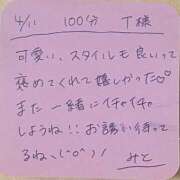 4/11 100分 T様
可愛い、スタイルも良いって
褒めてくれて嬉しかった♡
また一緒にイチャイチャ
しようね!!お誘い待って
るね、(^o^)丿
みと